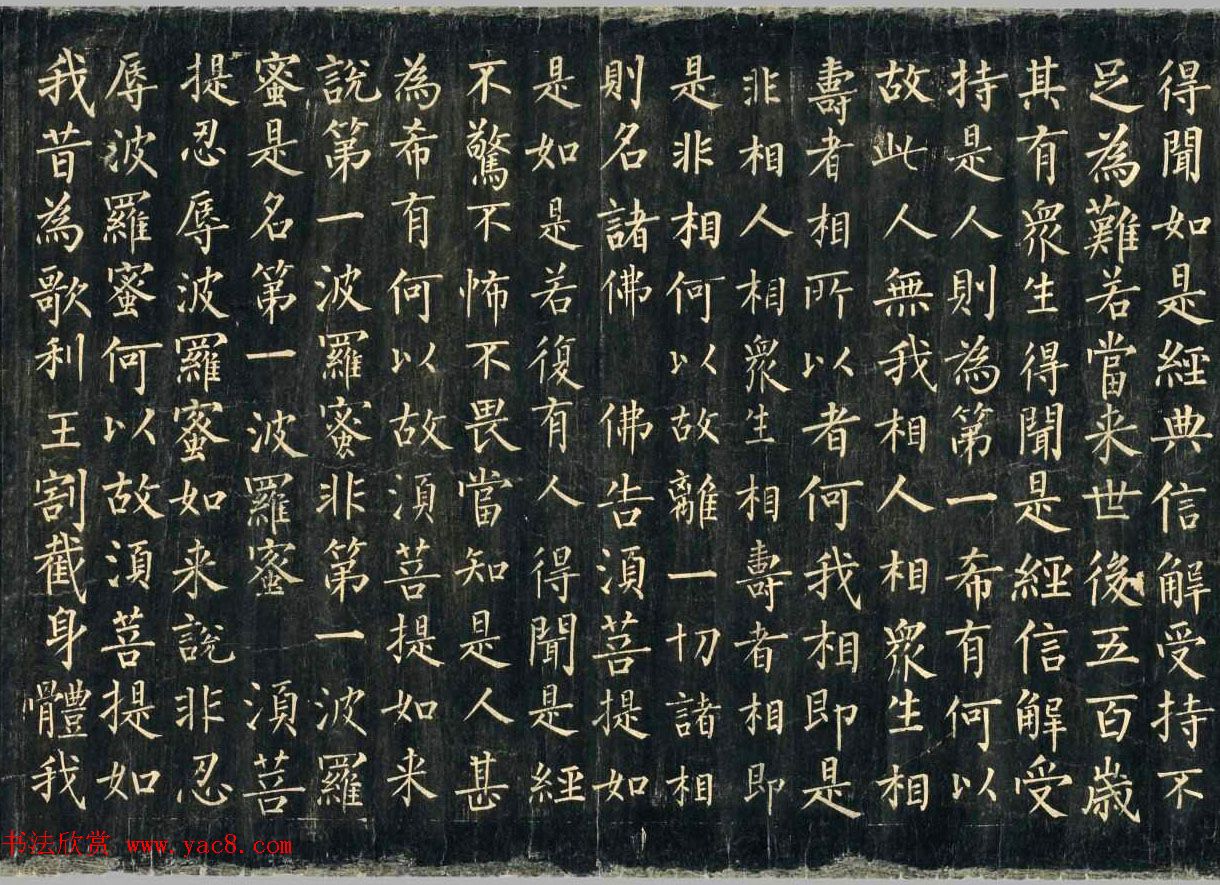 得聞如是經典信解受持不
足為難若當来世後五百歳
其有眾生得聞是經信解受
持是人則為第一希有何以
故此人無我相人相眾生相
壽者相所以者何我相即是
非相人相眾生相壽者相即
是非相何以故離一切諸相
則名諸佛 佛告湏菩提如
是如是若復有人得聞是經
不驚不怖不畏當知是人甚
為希有何以故湏菩提如来
說第一波羅蜜非第一波羅
蜜是名第一波羅蜜 湏菩
提忍辱波羅蜜如来說非忍
辱波羅蜜何以故湏菩提如
我昔為歌利王割截身體我
书法欣赏 www.yac8.com